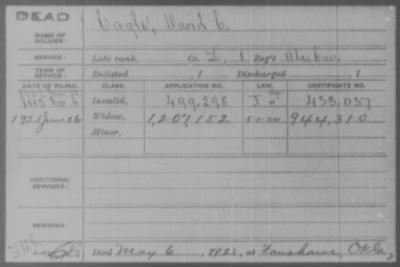 DEAD
Cagle, David C.
NAME OF SOLDIER:
SERVICE: Late rank, Co. L, 1 Reg't Ala. Cav.
TERM OF SERVICE: Enlisted , 1 Discharged , 1
DATE OF FILING. CLASS. APPLICATION NO. LAW. CERTIFICATE NO.
Invalid, 499,298 433,037
1921 June 26 Widow, 1,207,152 944,310
Minor,
ADDITIONAL SERVICES:
REMARKS:
Died May 6, 1921, at Fanshawe, Okla.